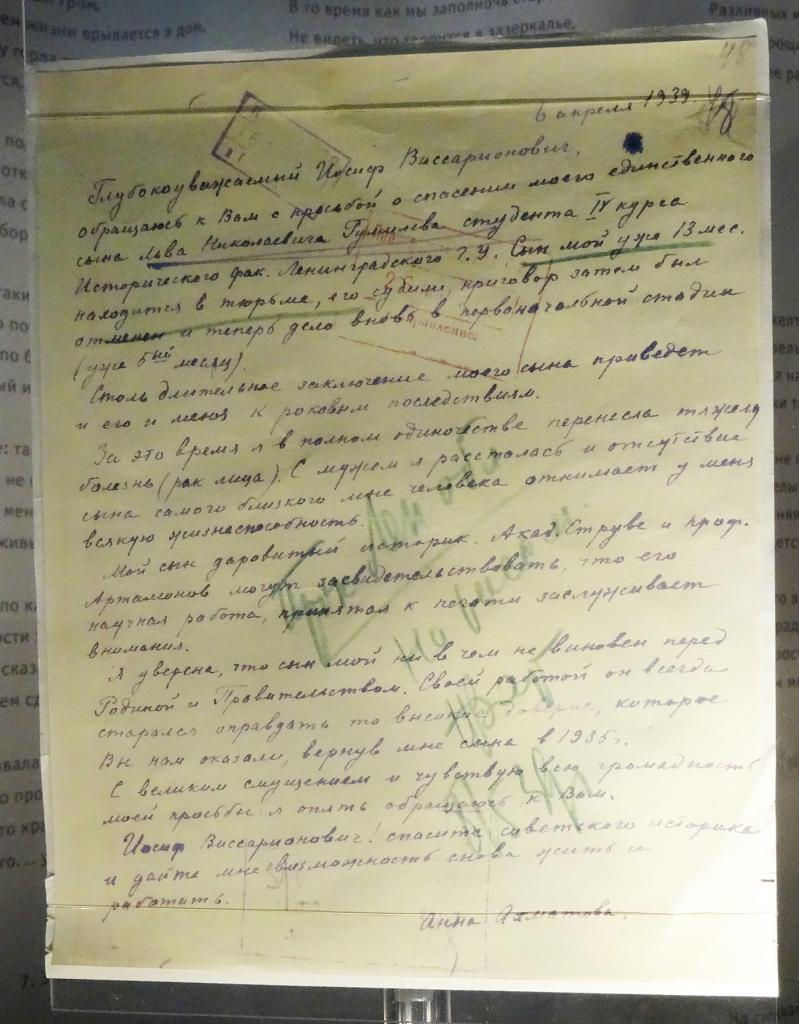 В то время как мы
жизни врывается в дом,
Не видеть, что творится в зазеркалье,
6 апреля 1939
Глубокоуважаемый Иосиф Виссарионович,
обращаюсь к Вам с просьбой о спасении моего единственного
сына Льва Николаевича Гумилева студента IV курса
Исторического фак. Ленинградского Г.У. Сын мой уже 13 мес.
находится в тюрьме, его судили, приговор затем был
отменен и теперь дело вновь в первоначальной стадии
(уже 5ый месяц).
Столь длительное заключение моего сына приведет
и его и меня к роковым последствиям.
За это время я в полном одиночестве перенесла тяжелую
болезнь (рак лица). С мужем я рассталась и отсутствие
сына самого близкого мне человека отнимает у меня
всякую жизнеспособность.
Мой сын даровитый историк. Акад. Струве и проф.
Артамонов могут засвидетельствовать, что его
научная работа, принятая к печати заслуживает
внимания.
Я уверена, что сын мой ни в чем не виновен перед
Родиной и Правительством. Своей работой он всегда
старался оправдать то высокое доверие, которое
Вы нам оказали, вернув мне сына в 1935г.
С великим смущением и чувствуя всю громадность
моей просьбы я опять обращаюсь к Вам.
Иосиф Виссарионович! спасите советского историка
и дайте мне возможность снова жить и
работать.
Анна Ахматова.